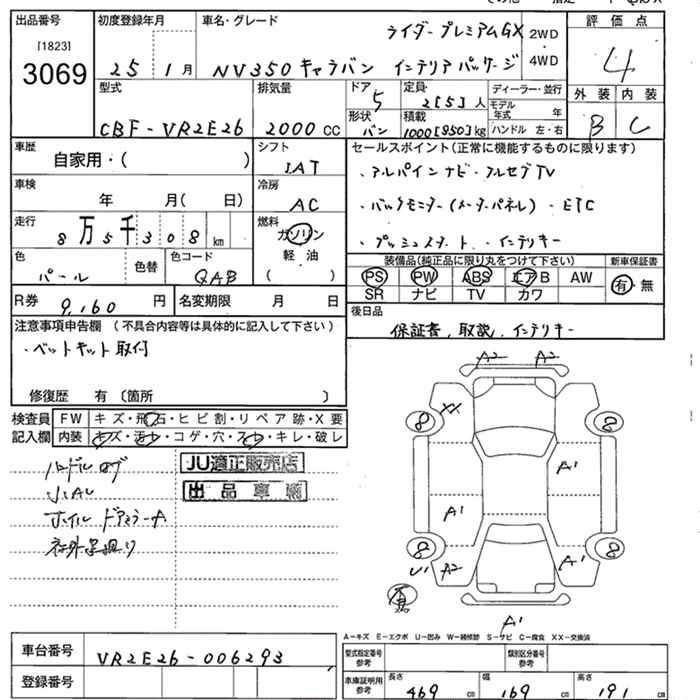 出品番号
[1823]
3069
初度登録年月
25 1月
車名・グレード
ライダープレミアムGX
NV350 キャラバン インテリアパッケージ
2WD
・
4WD
評価点
4
外装 内装
B C
型式
CBF-VR2E26
排気量
2000cc
ドア
5
形状
バン
定員
2[5]人
積載
1000[850]kg
ディーラー・並行
モデル年式 年
ハンドル 左・右
車歴
自家用・( )
シフト
IAT
車検
年 月( 日)
冷房
AC
走行
8万5千308km
燃料
ガソリン
軽油
( )
色
パール
色替
色コード
QAB
R券
9,160円
名変期限 月 日
セールスポイント(正常に機能するものに限ります)
・アルパインナビ・フルセグTV
・バックモニター(メーターパネル)・ETC
・プッシュスタート・インテリキー
装備品(純正品に限り丸をつけて下さい)
PS PW ABS エアB AW
SR ナビ TV カワ
新車保証書
有・無
後日品
保証書、取説、インテリキー
注意事項申告欄(不具合内容等は具体的に記入して下さい)
・ベットキット取付
修復歴 有〔箇所 〕
検査員記入欄
FW キズ・飛石・ヒビ割・リペア跡・X要
内装 キズ・汚れ・コゲ・穴・スレ・キレ・破レ
JU適正販売店
出品車輌
ホイル ドアミラーA
A2 A2
XX
8 8
A1
A1
8 8
U1 A2 A1
A1
A-キズ E-エクボ U-凹み W-補修跡 S-サビ C-腐食 XX-交換済
車台番号
VR2E26-006293
登録番号
型式指定番号 参考
類別区分番号 参考
車庫証明用 参考
長さ 469cm
幅 169cm
高さ 191cm